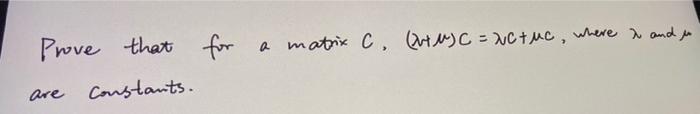 Prove that for a matrix C, (λ+μ)C = λC+μC, where λ and μ
are constants.